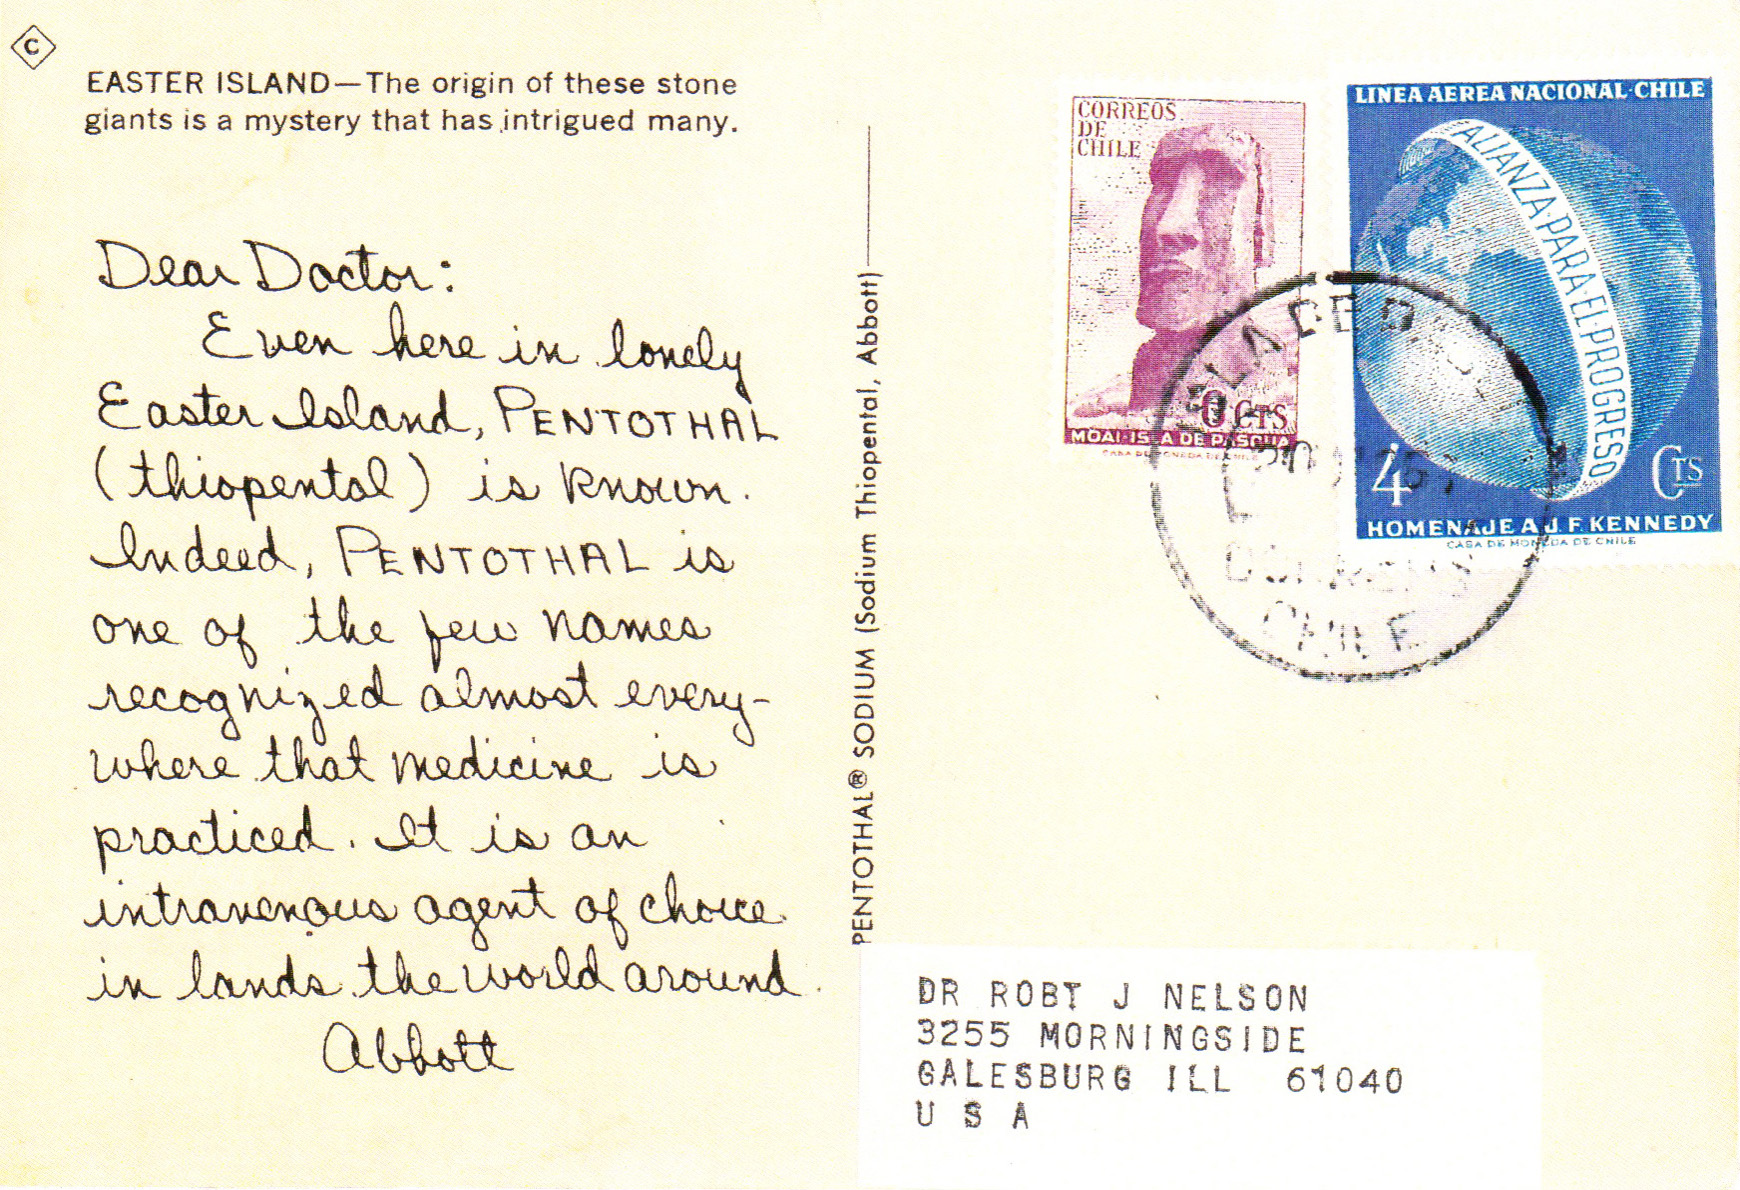 C
EASTER ISLAND—The origin of these stone
giants is a mystery that has intrigued many.
Dear Doctor:
Even here in lonely
Easter Island, PENTOTHAL
(thiopental) is known.
Indeed, PENTOTHAL is
one of the few names
recognized almost every-
where that medicine is
practiced. It is an
intravenous agent of choice
in lands the world around.
Abbott
PENTOTHAL® SODIUM (Sodium Thiopental, Abbott)
CORREOS
DE
CHILE
CTS
MOAI·ISLA DE PASCUA
CASA DE MONEDA DE CHILE
LINEA AEREA NACIONAL·CHILE
ALIANZA PARA EL PROGRESO
4 CTS
HOMENAJE A J. F. KENNEDY
CASA DE MONEDA DE CHILE
ISLA DE
CHILE
DR ROBT J NELSON
3255 MORNINGSIDE
GALESBURG ILL 61040
U S A